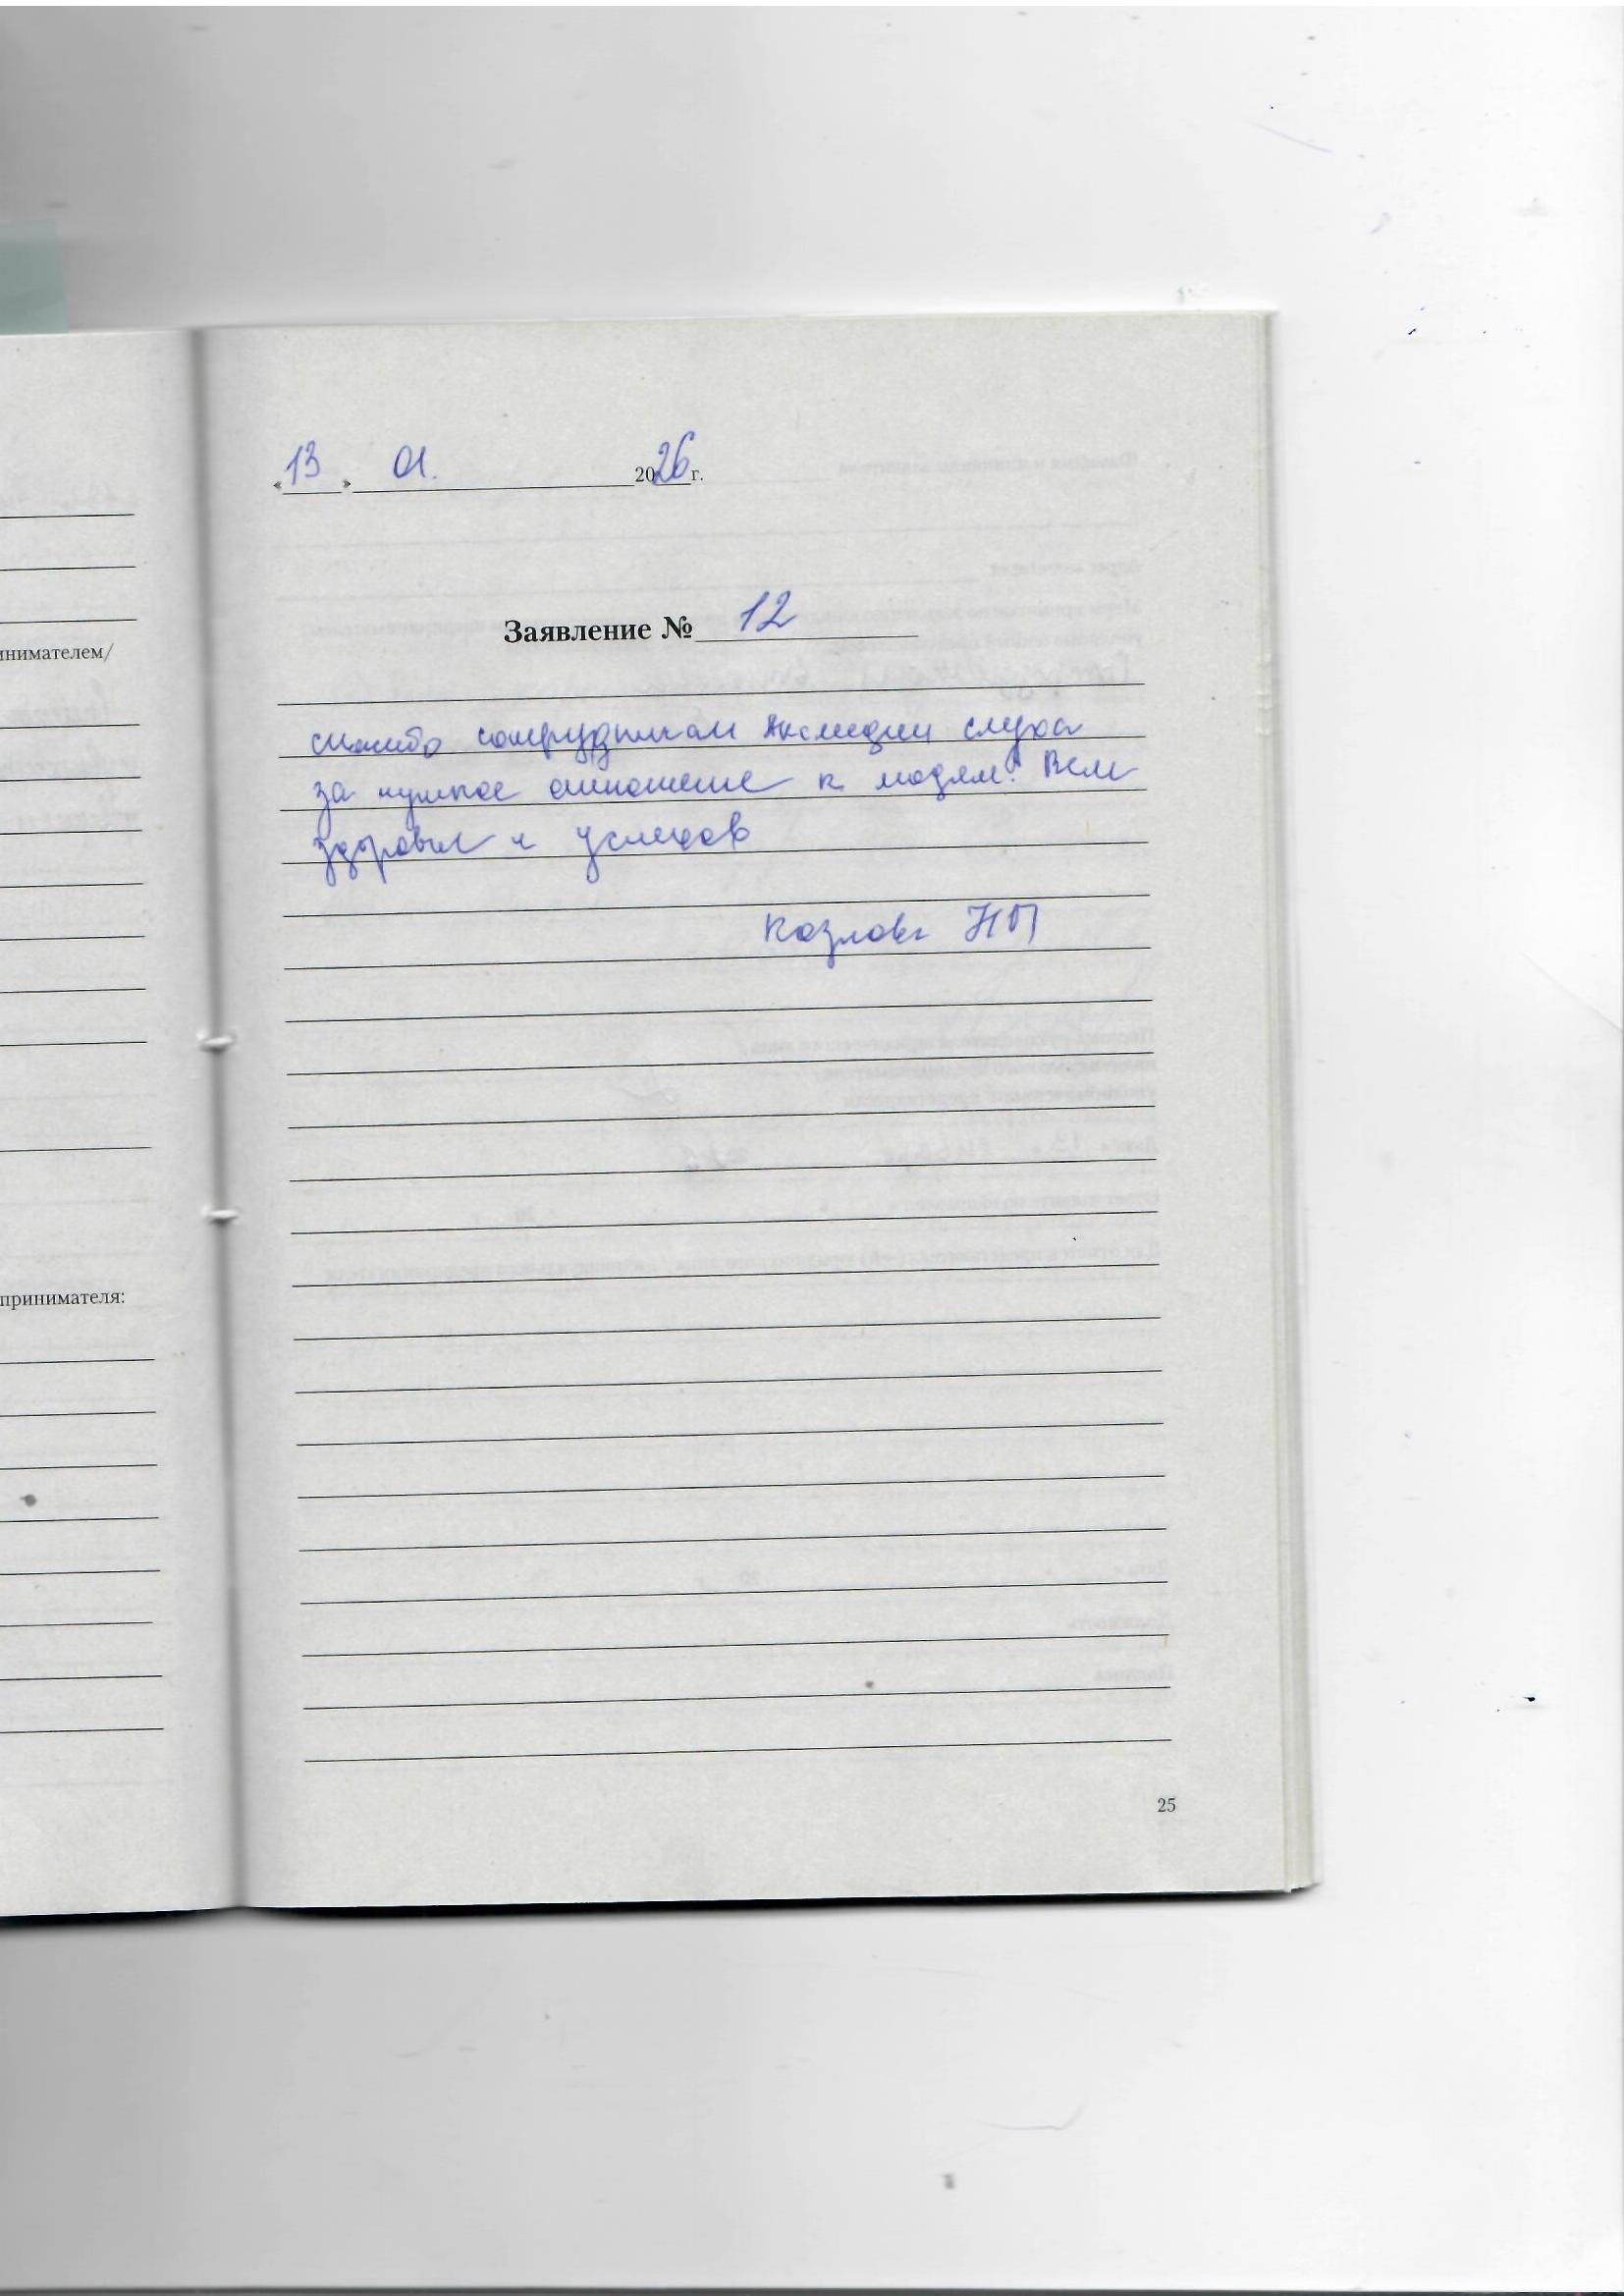 «13» 01. 2026 г.
Заявление № 12
спасибо сотрудникам Академии слуха
за чуткое отношение к людям! Всем
здоровья и успехов
Козлова НП
инимателем/
принимателя:
25